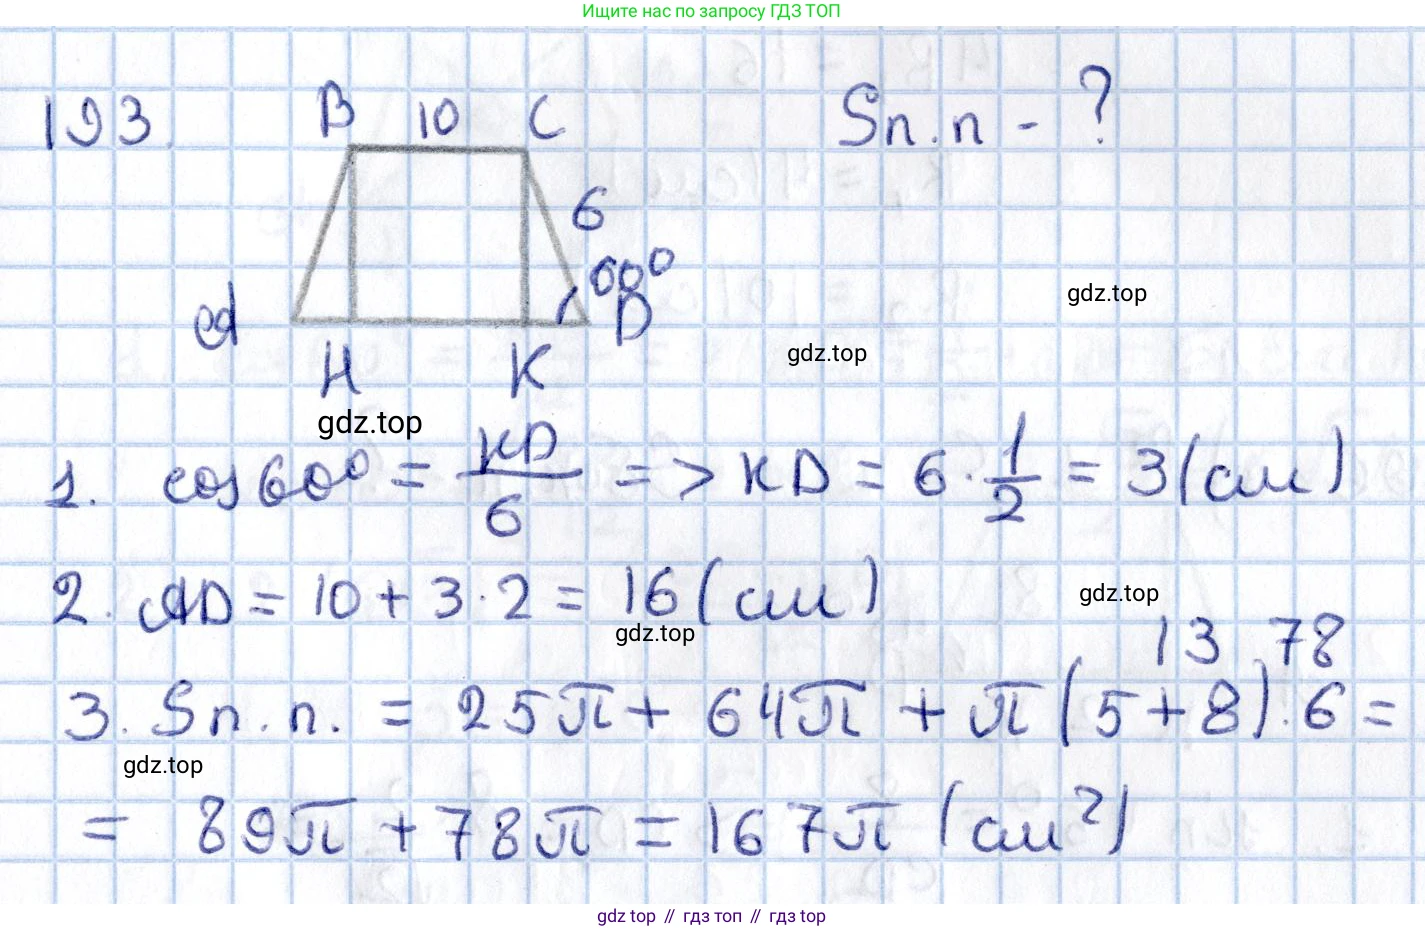 Ищите нас по запросу ГДЗ ТОП
193. B 10 C Sп.п - ?
6
60°
A D
gdz.top
H K
gdz.top
gdz.top
1. cos 60° = KD/6 => KD = 6 · 1/2 = 3 (см)
2. AD = 10 + 3 · 2 = 16 (см)
gdz.top
gdz.top
13 78
3. Sп.п. = 25π + 64π + π (5 + 8) · 6 =
gdz.top
= 89π + 78π = 167π (см²)
gdz top // гдз топ // гдз top